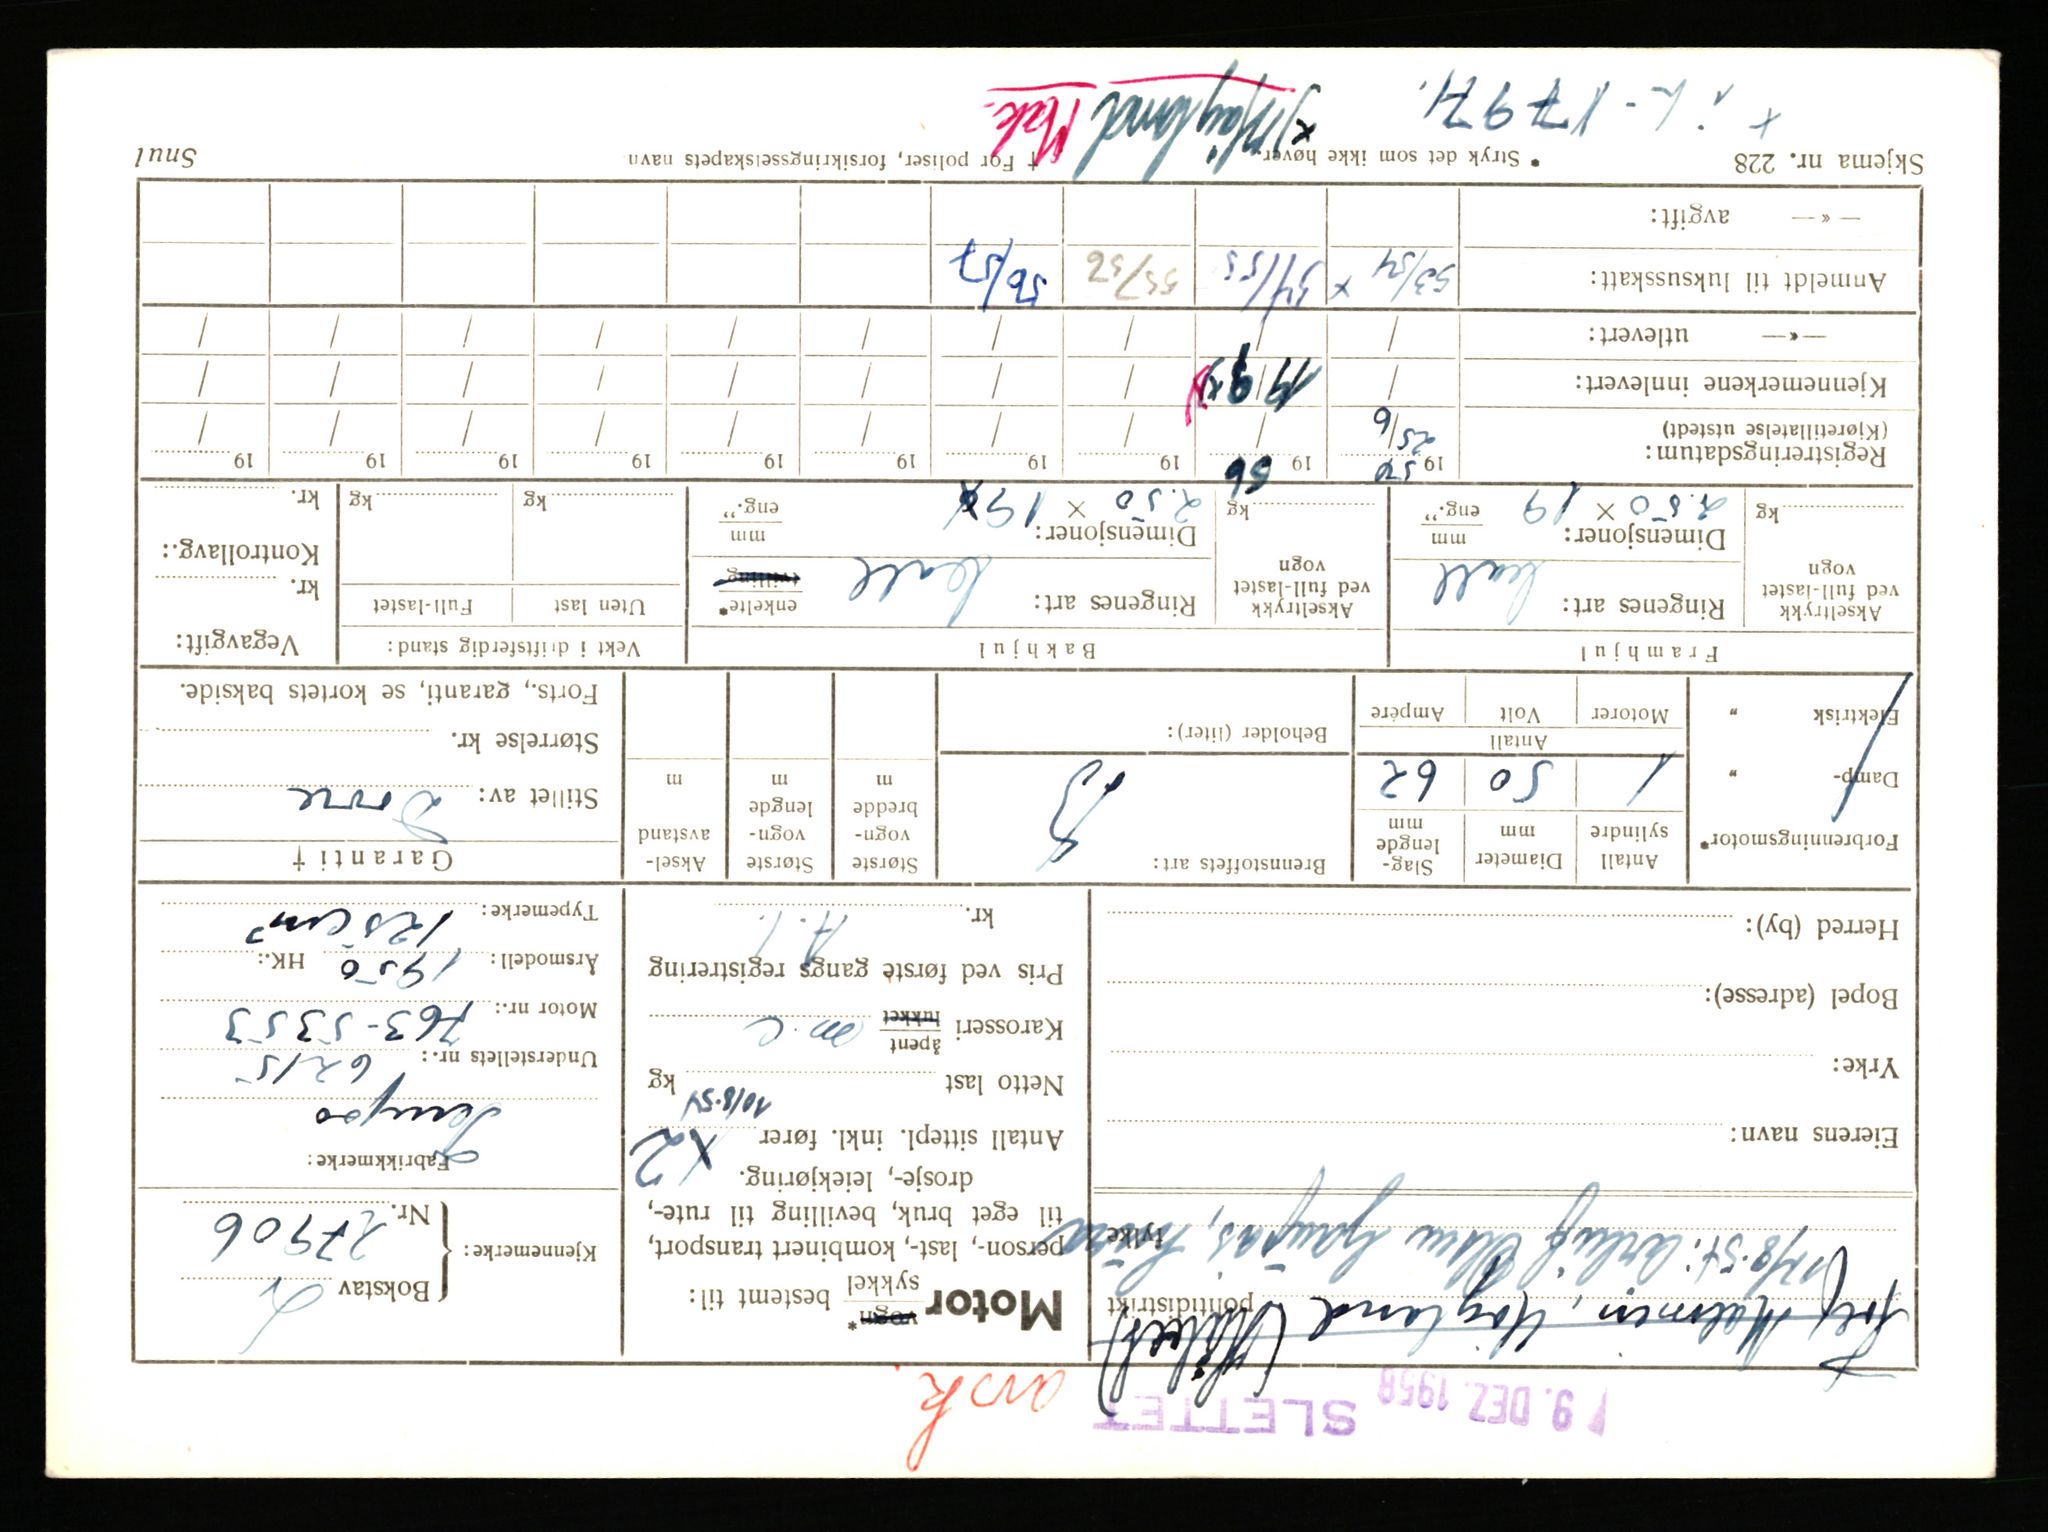 19. DEZ. 1958 SLETTET
Malmin, Høyland
politidistrikt
17/8.54:
stykke
Eierens navn:
Yrke:
Bopel (adresse):
Herred (by):
Motor vogn* sykkel bestemt til:
person-, last-, kombinert transport,
til eget bruk, bevilling til rute-,
drosje-, leiekjøring.
Antall sittepl. inkl. fører X2
10/8.54
Netto last kg
Karosseri åpent lukket m.c
Pris ved første gangs registrering
kr.
Kjennemerke: Bokstav L
Nr. 27906
Fabrikkmerke:
Tempo
Understellets nr.: 6215
Motor nr.: 763-5353
Årsmodell: 1950 HK.:
Typemerke: 125 cm³
Forbrenningsmotor*
Damp- „
Elektrisk „
Antall sylindre 1
Diameter mm 50
Slag-lengde mm 62
Antall
Motorer Volt Ampére
Brennstoffets art: B
Beholder (liter):
Største vogn-bredde m
Største vogn-lengde m
Aksel-avstand m
Garanti †
Stillet av:
Størrelse kr.
Forts., garanti, se kortets bakside.
Framhjul
Akseltrykk ved full-lastet vogn kg
Ringenes art:
Dimensjoner: mm eng.”
2.50 × 19
Bakhjul
Akseltrykk ved full-lastet vogn kg
Ringenes art: enkelte* tvilling
Dimensjoner: mm eng.”
2.50 × 19
Vekt i driftsferdig stand:
Uten last Full-lastet
kg kg
Vegavgift:
kr.
Kontrollavg.:
kr.
Registreringsdatum:
(Kjøretillatelse utstedt)
1950 1956 19 19 19 19 19 19 19 19
25/6 / / / / / / / / /
Kjennemerkene innlevert: / 19/9 x) / / / / / / / /
—«— utlevert: / / / / / / / / / /
Anmeldt til luksusskatt: 53/54 x 54/55 55/56 56/57
—«— avgift:
Skjema nr. 228
* Stryk det som ikke høver.
† For poliser, forsikringsselskapets navn
Snul
17971.
x) Høyland